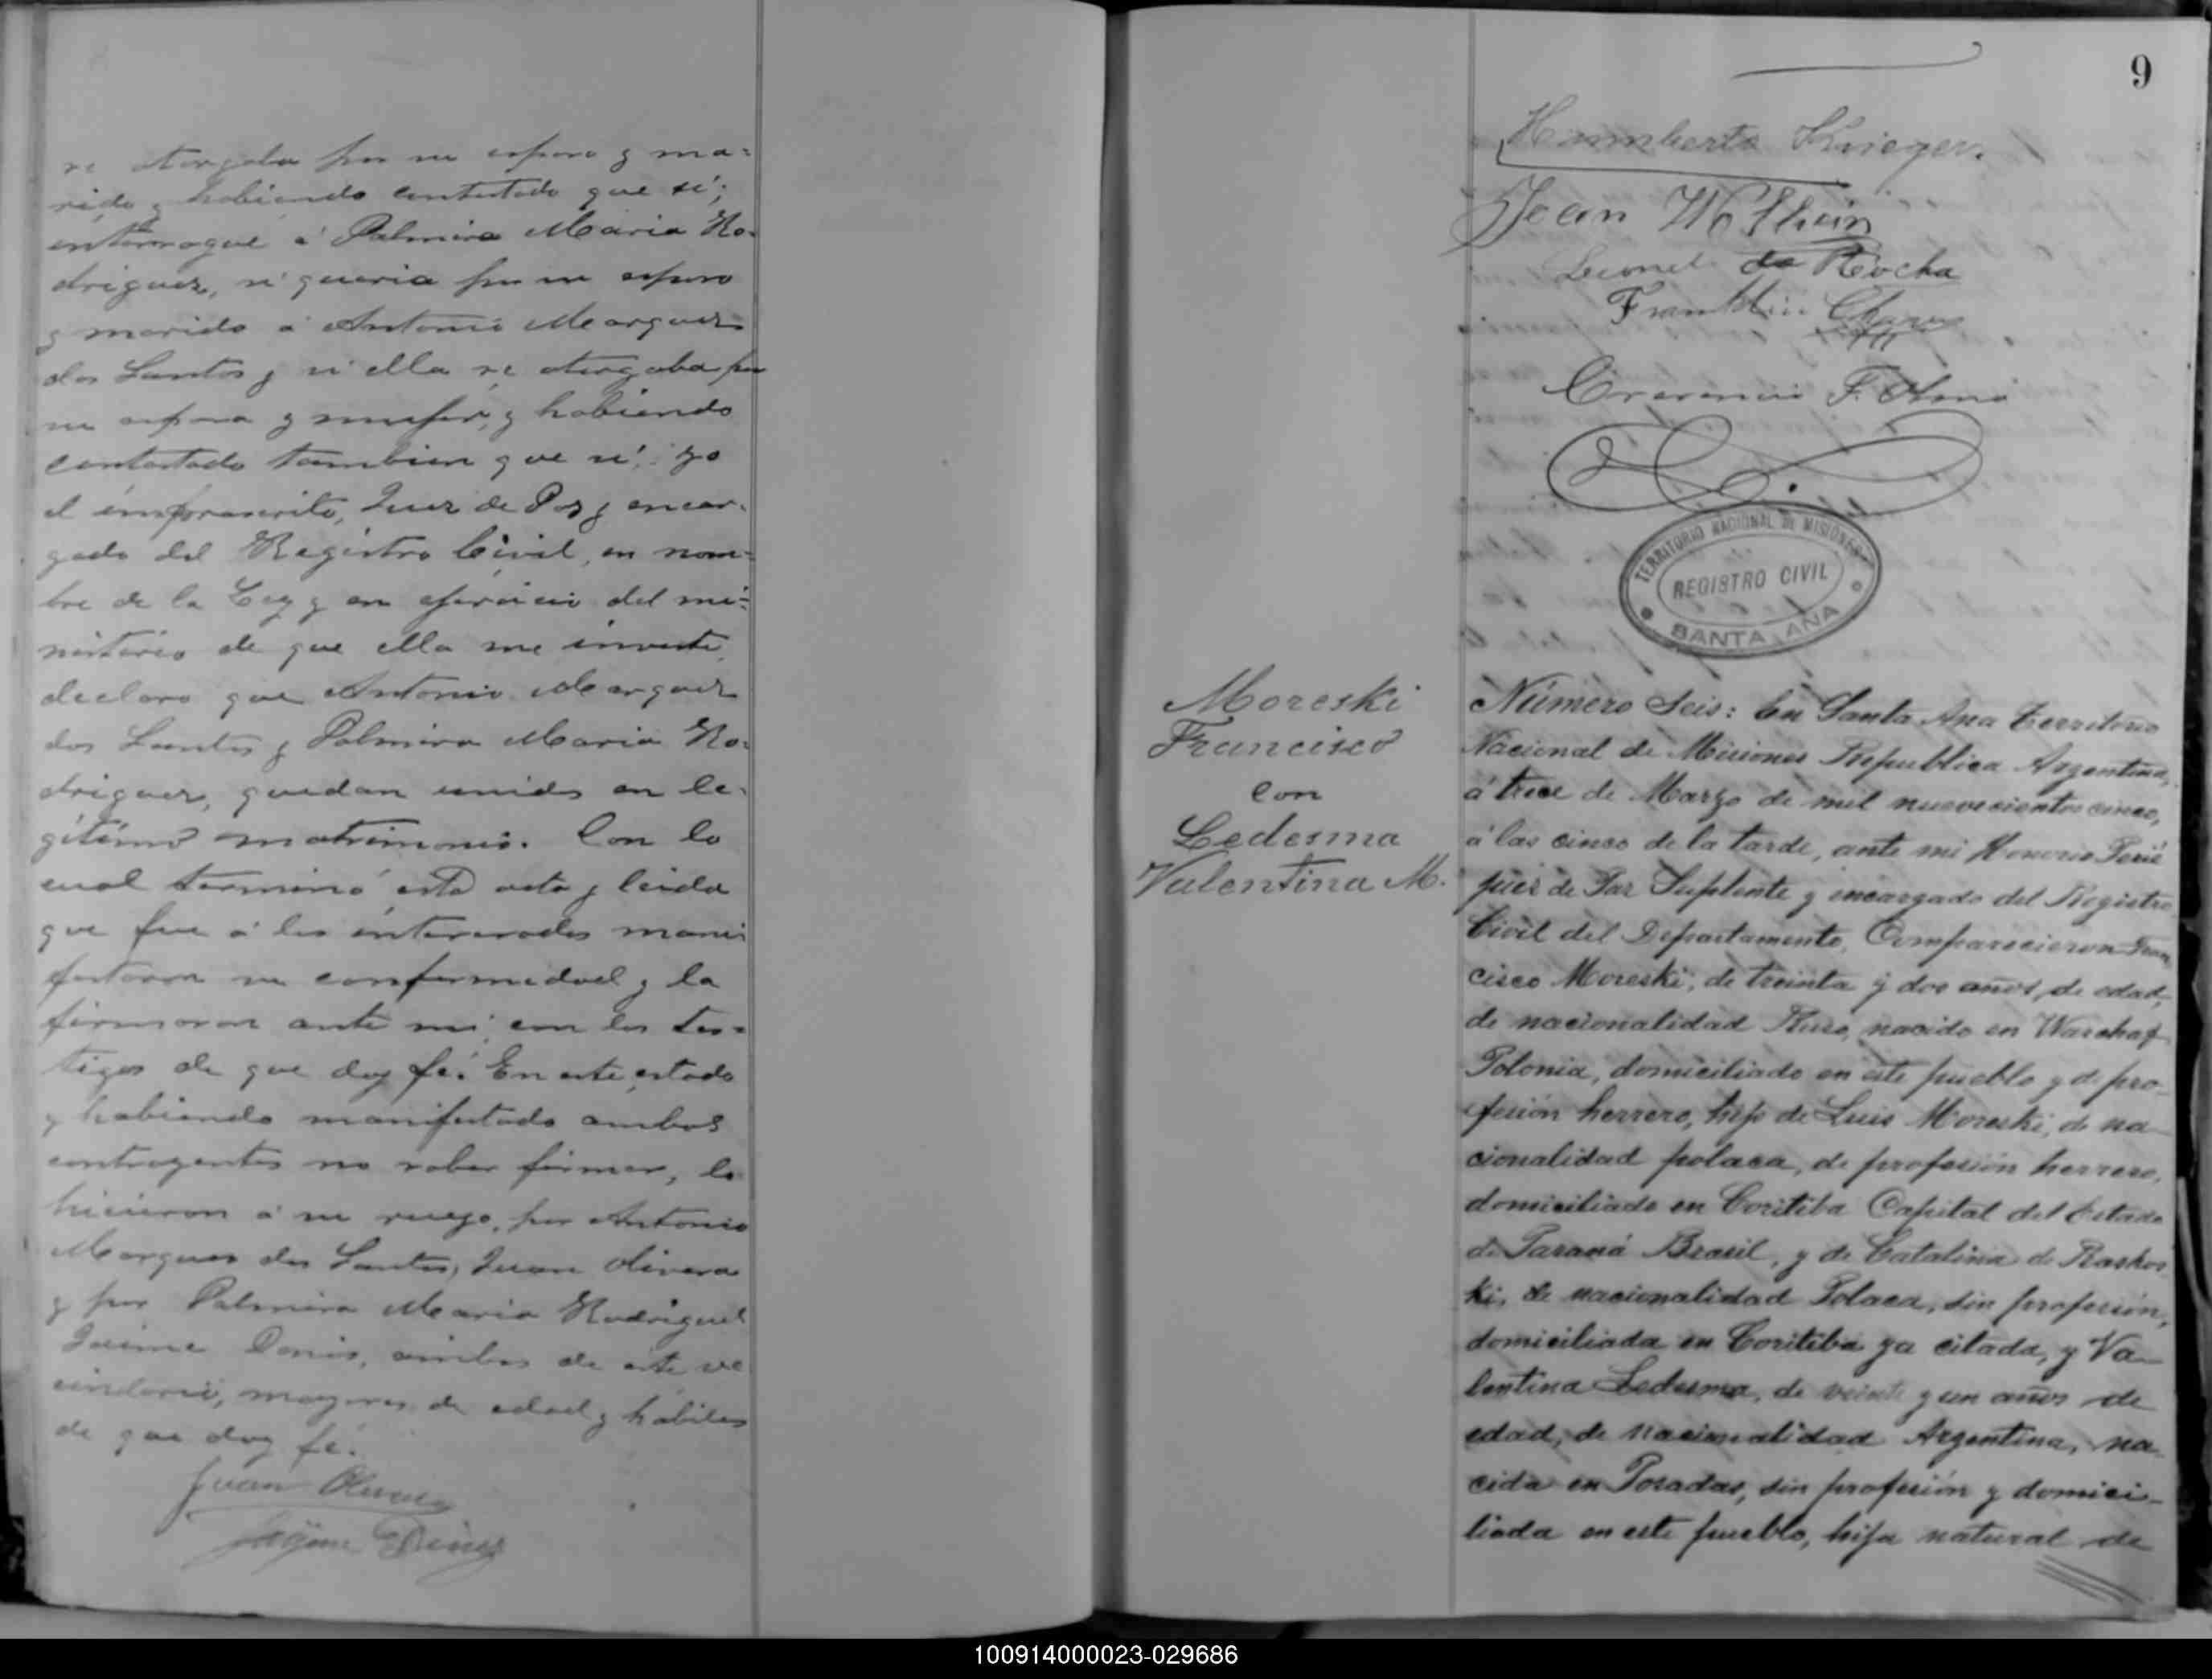 se otorgaba por su esposo y ma=
rido y habiendo contestado que sí;
interrogué á Palmira Maria Ro-
driguez, si queria por su esposo
y marido á Antonio Marques
dos Santos y si ella se otorgaba por
su esposa y mujer, y habiendo
contestado tambien que sí; yo
el infrascrito, Juez de Paz y encar-
gado del Registro Civil, en nom=
bre de la Ley y en ejercicio del mi=
nisterio de que ella me inviste,
declaro que Antonio Marques
dos Santos y Palmira Maria Ro-
driguez, quedan unidos en le-
gítimo matrimonio. Con lo
cual terminó esta acta y leida
que fue á los interesados mani
festaron su conformidad y la
firmaron ante mi con los tes=
tigos de que doy fé. En este estado
y habiendo manifestado ambos
contrayentes no saber firmar, lo
hicieron á su ruego, por Antonio
Marques dos Santos, Juan Olivera
y por Palmira Maria Rodriguez
Jaime Denis, ambos de este ve
cindario, mayores de edad y hábiles
de que doy fé.
Juan Olivera
9
Humberto Krieger.
Jean
Leonel da Rocha
Franklin
F.
TERRITORIO NACIONAL DE MISIONES
REGISTRO CIVIL
SANTA ANA
Moreski
Francisco
con
Ledesma
Valentina M.
Número Seis: En Santa Ana Territorio
Nacional de Misiones Republica Argentina,
á trece de Marzo de mil nuevecientos cinco,
á las cinco de la tarde, ante mi Honorio
juez de Paz Suplente y encargado del Registro
Civil del Departamento, Comparecieron Fran
cisco Moreski, de treinta y dos años de edad,
de nacionalidad Ruso, nacido en
Polonia, domiciliado en este pueblo y de pro-
fesión herrero, hijo de Luis Moreski, de na-
cionalidad polaca, de profesión herrero,
domiciliado en Coritiba Capital del Estado
de Paraná Brasil, y de Catalina de Raskos
ki, de nacionalidad Polaca, sin profesión,
domiciliada en Coritiba ya citada, y Va-
lentina Ledesma, de veinte y un años de
edad, de nacionalidad Argentina, na
cida en Posadas, sin profesión y domici-
liada en este pueblo, hija natural de
100914000023-029686